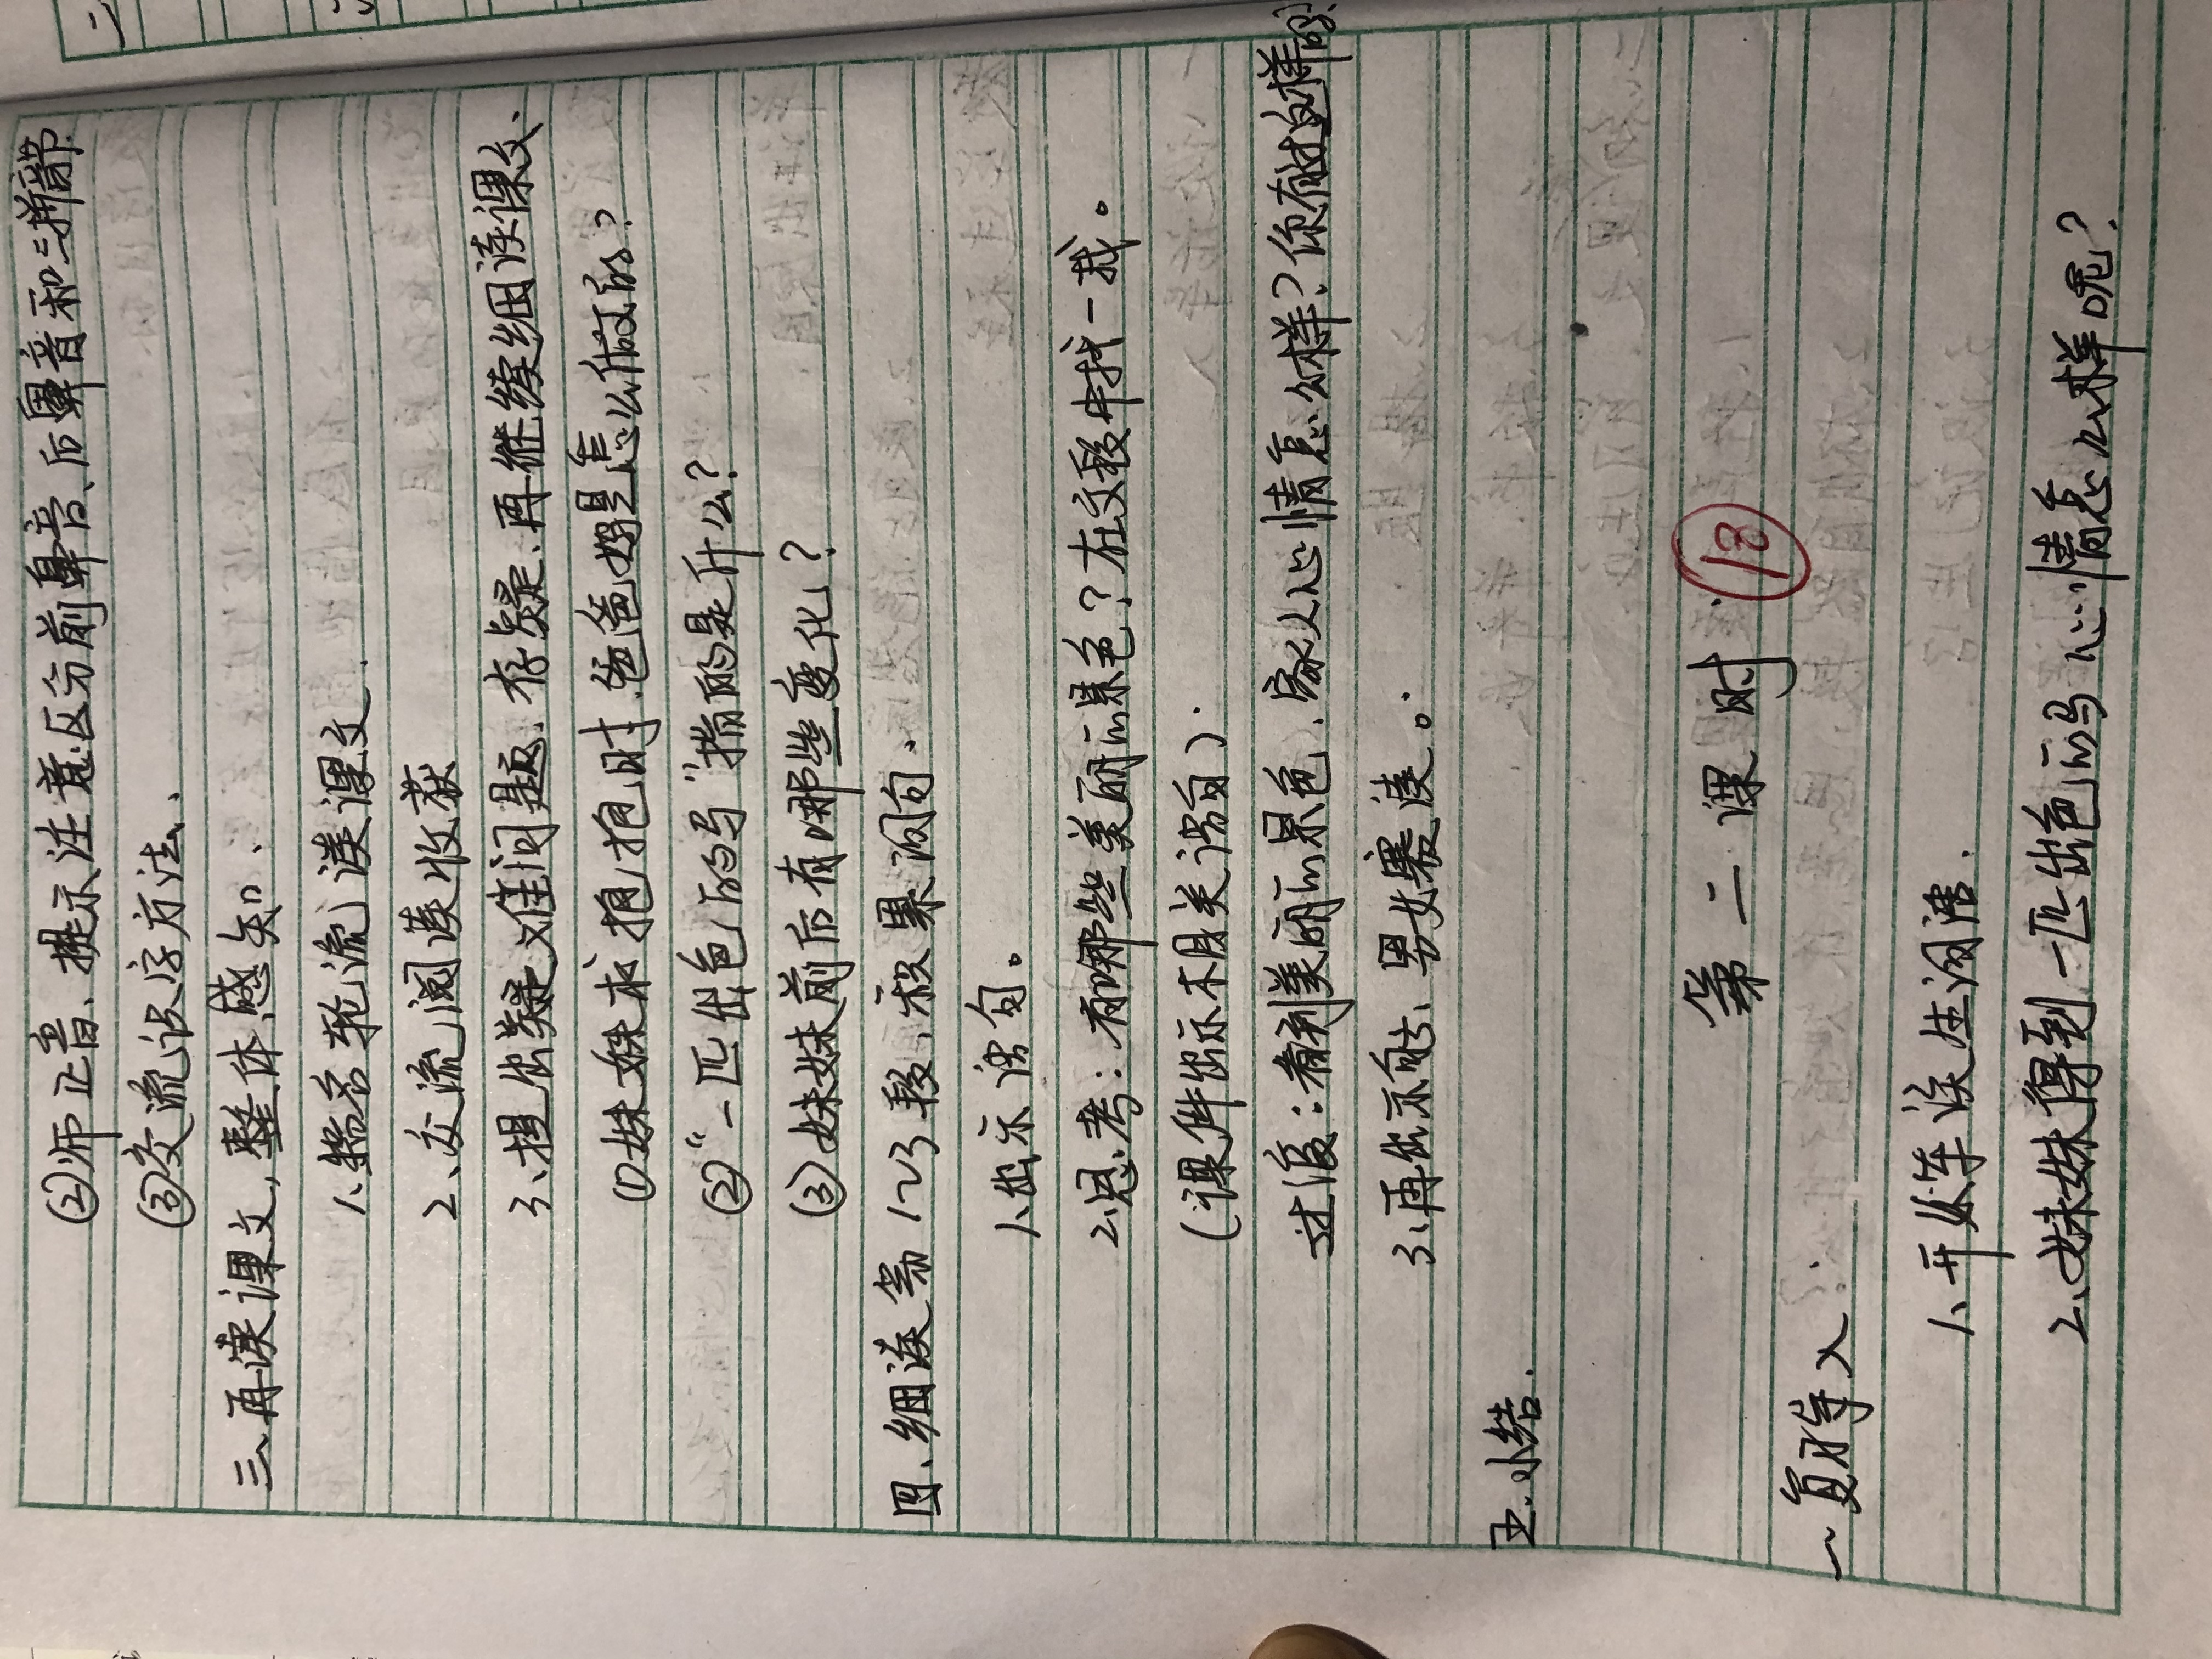 ②师正音、提示注意区分前鼻音、后鼻音和三拼音节
③交流识字方法、
三、再读课文，整体感知、
1、指名轮流读课文.
2、交流阅读收获
3、提出疑难问题、存疑、再继续细读课文、
①妹妹求抱抱时、爸爸妈妈是怎么做的？
②“一匹出色的马”指的是什么？
③妹妹前后有哪些变化？
四、细读第1~3段、积累词句、
1、出示词句。
2、思考：有哪些美丽的景色？在文段中找一找。
（课件出示相关语句）.
过渡：看到美丽的景色、家人心情怎么样？你有过这样的
3、再出示句子、男女赛读。
五、小结.
第二课时
13
一、复习导入
1、开火车读生词语.
2、妹妹得到一匹出色的马心情怎么样呢？